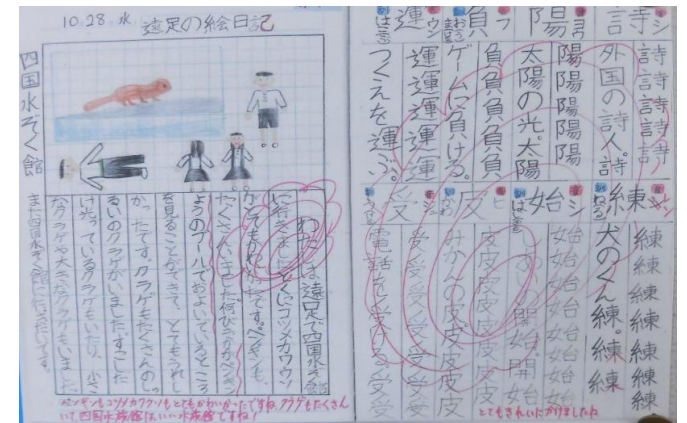 10.28 水 遠足の絵日記
四国水ぞく館
わたしは遠足で四国水ぞく館
に行きました。とくにコツメカワウソ
たくさんいました。何びきかがペンギン
ようのプールでおよいでいるところ
を見ることができて、とてもうれし
かったです。クラゲもたくさんの
るいのクラゲがいました。すこし
け光っているクラゲもいたり、小さ
なクラゲや大きなクラゲもいました。
また四国水ぞく館に行きたいです。
ペンギンもコツメカワウソもとてもかわいかったですね。クラゲもたくさん
いて四国水族館はいい水族館ですね!
詩 シ
詩詩詩詩詩
外国の詩人。詩
陽 ヨウ
陽陽陽陽陽
太陽の光。太陽
負 フ
負負負負負
ゲームに負ける。
運 ウン はこぶ
運運運運運
つくえを運ぶ。
練 レン ねる
練練練練練練
犬のくん練。練練
始 シ はじめる
始始始始始始
開始。開始
皮 ヒ かわ
皮皮皮皮皮皮
みかんの皮。皮皮
受 ジュ うける
受受受受受受
電話を受ける。受受
とてもきれいにかけましたね